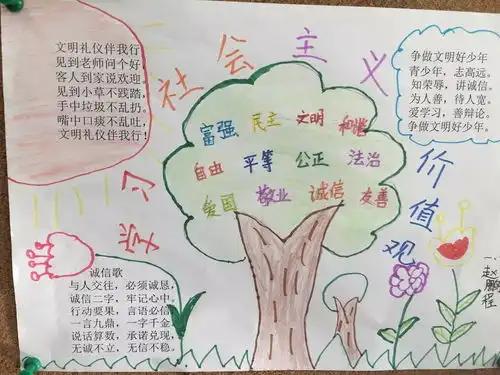 学习社会主义价值观
文明礼仪伴我行
见到老师问个好
客人到家说欢迎
见到小草不践踏,
手中垃圾不乱扔。
嘴中口痰不乱吐,
文明礼仪伴我行!
争做文明好少年
青少年,志高远。
知荣辱,讲诚信。
为人善,待人宽。
爱学习,善辩论。
争做文明好少年。
富强 民主 文明 和谐
自由 平等 公正 法治
爱国 敬业 诚信 友善
诚信歌
与人交往,必须诚恳,
诚信二字,牢记心中。
行动要果,言语必信,
一言九鼎,一字千金。
说话算数,承诺兑现,
无诚不立,无信不稳。
赵鹏程